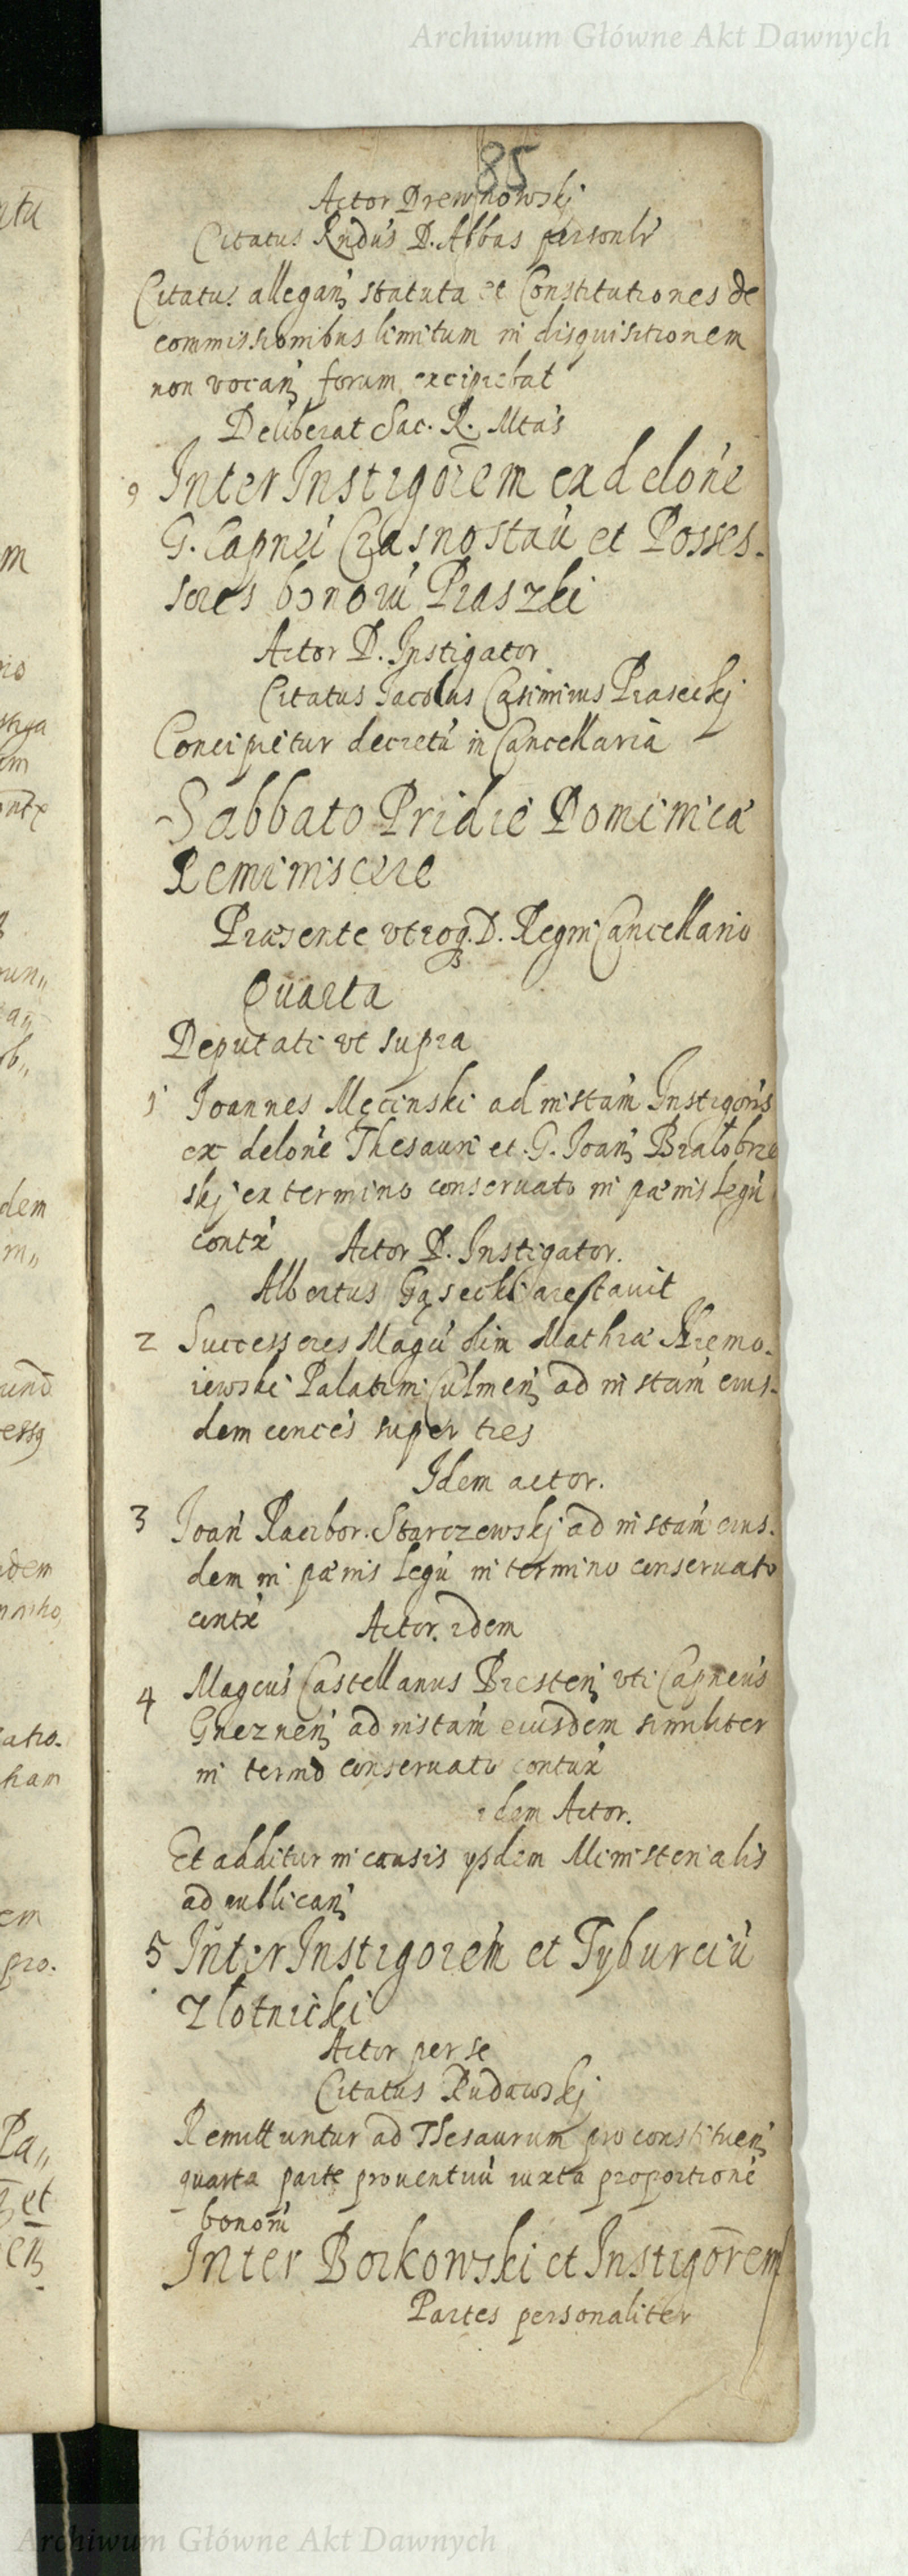 Archiwum Główne Akt Dawnych
85
Actor Drewnowskj
Citatus Rndus D. Abbas personlr
Citatus allegan statuta et Constitutiones de
commissionibus limitum in disquisitionem
non vocan forum excipiebat
Deliberat Sac. R. Mtas
9 Inter Instigorem ex delone
G. Capnei Crasnostau et Posses-
sores bonoru Praszki
Actor D. Instigator
Citatus Jacobus Casimirus Piaseckj
Concipietur decretu in Cancellaria
Sabbato Pridie Dominica
Reminiscere
Præsente vtroq. D. Regni Cancellario
Quarta
Deputati vt supra
1 Joannes Męcinski ad instam Instigoris
ex delone Thesauri et G. Joan Białobrze
skj ex termino conseruato in pœnis legu
contx Actor D. Instigator.
Albertus Gąsecki arestauit
2 Successores Magci olim Mathiæ
Palatini Culmen ad instam eius-
dem super tres
Idem actor.
3 Joan Racibor. Starczewskj ad instam eius-
dem in pœnis legu in termino conseruato
contx Actor. idem
4 Magcus Castellanus Bresten vti Capneus
Gneznen ad instam eiusdem similiter
in termo conseruato contux
idem Actor.
Et additur in causis ysdem Ministerialis
ad publican
5 Inter Instigorem et Tyburciu
Złotnicki
Actor per se
Citatus Rudawskj
Remittuntur ad Thesaurum pro constituen
quarta parte prouentuu iuxta proportione
bonom
Inter Borkowski et Instigorem
Partes personaliter
Archiwum Główne Akt Dawnych